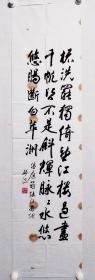 梳洗罷獨倚望江樓過盡
千帆皆不是斜暉脉々水悠
悠腸斷白苹洲